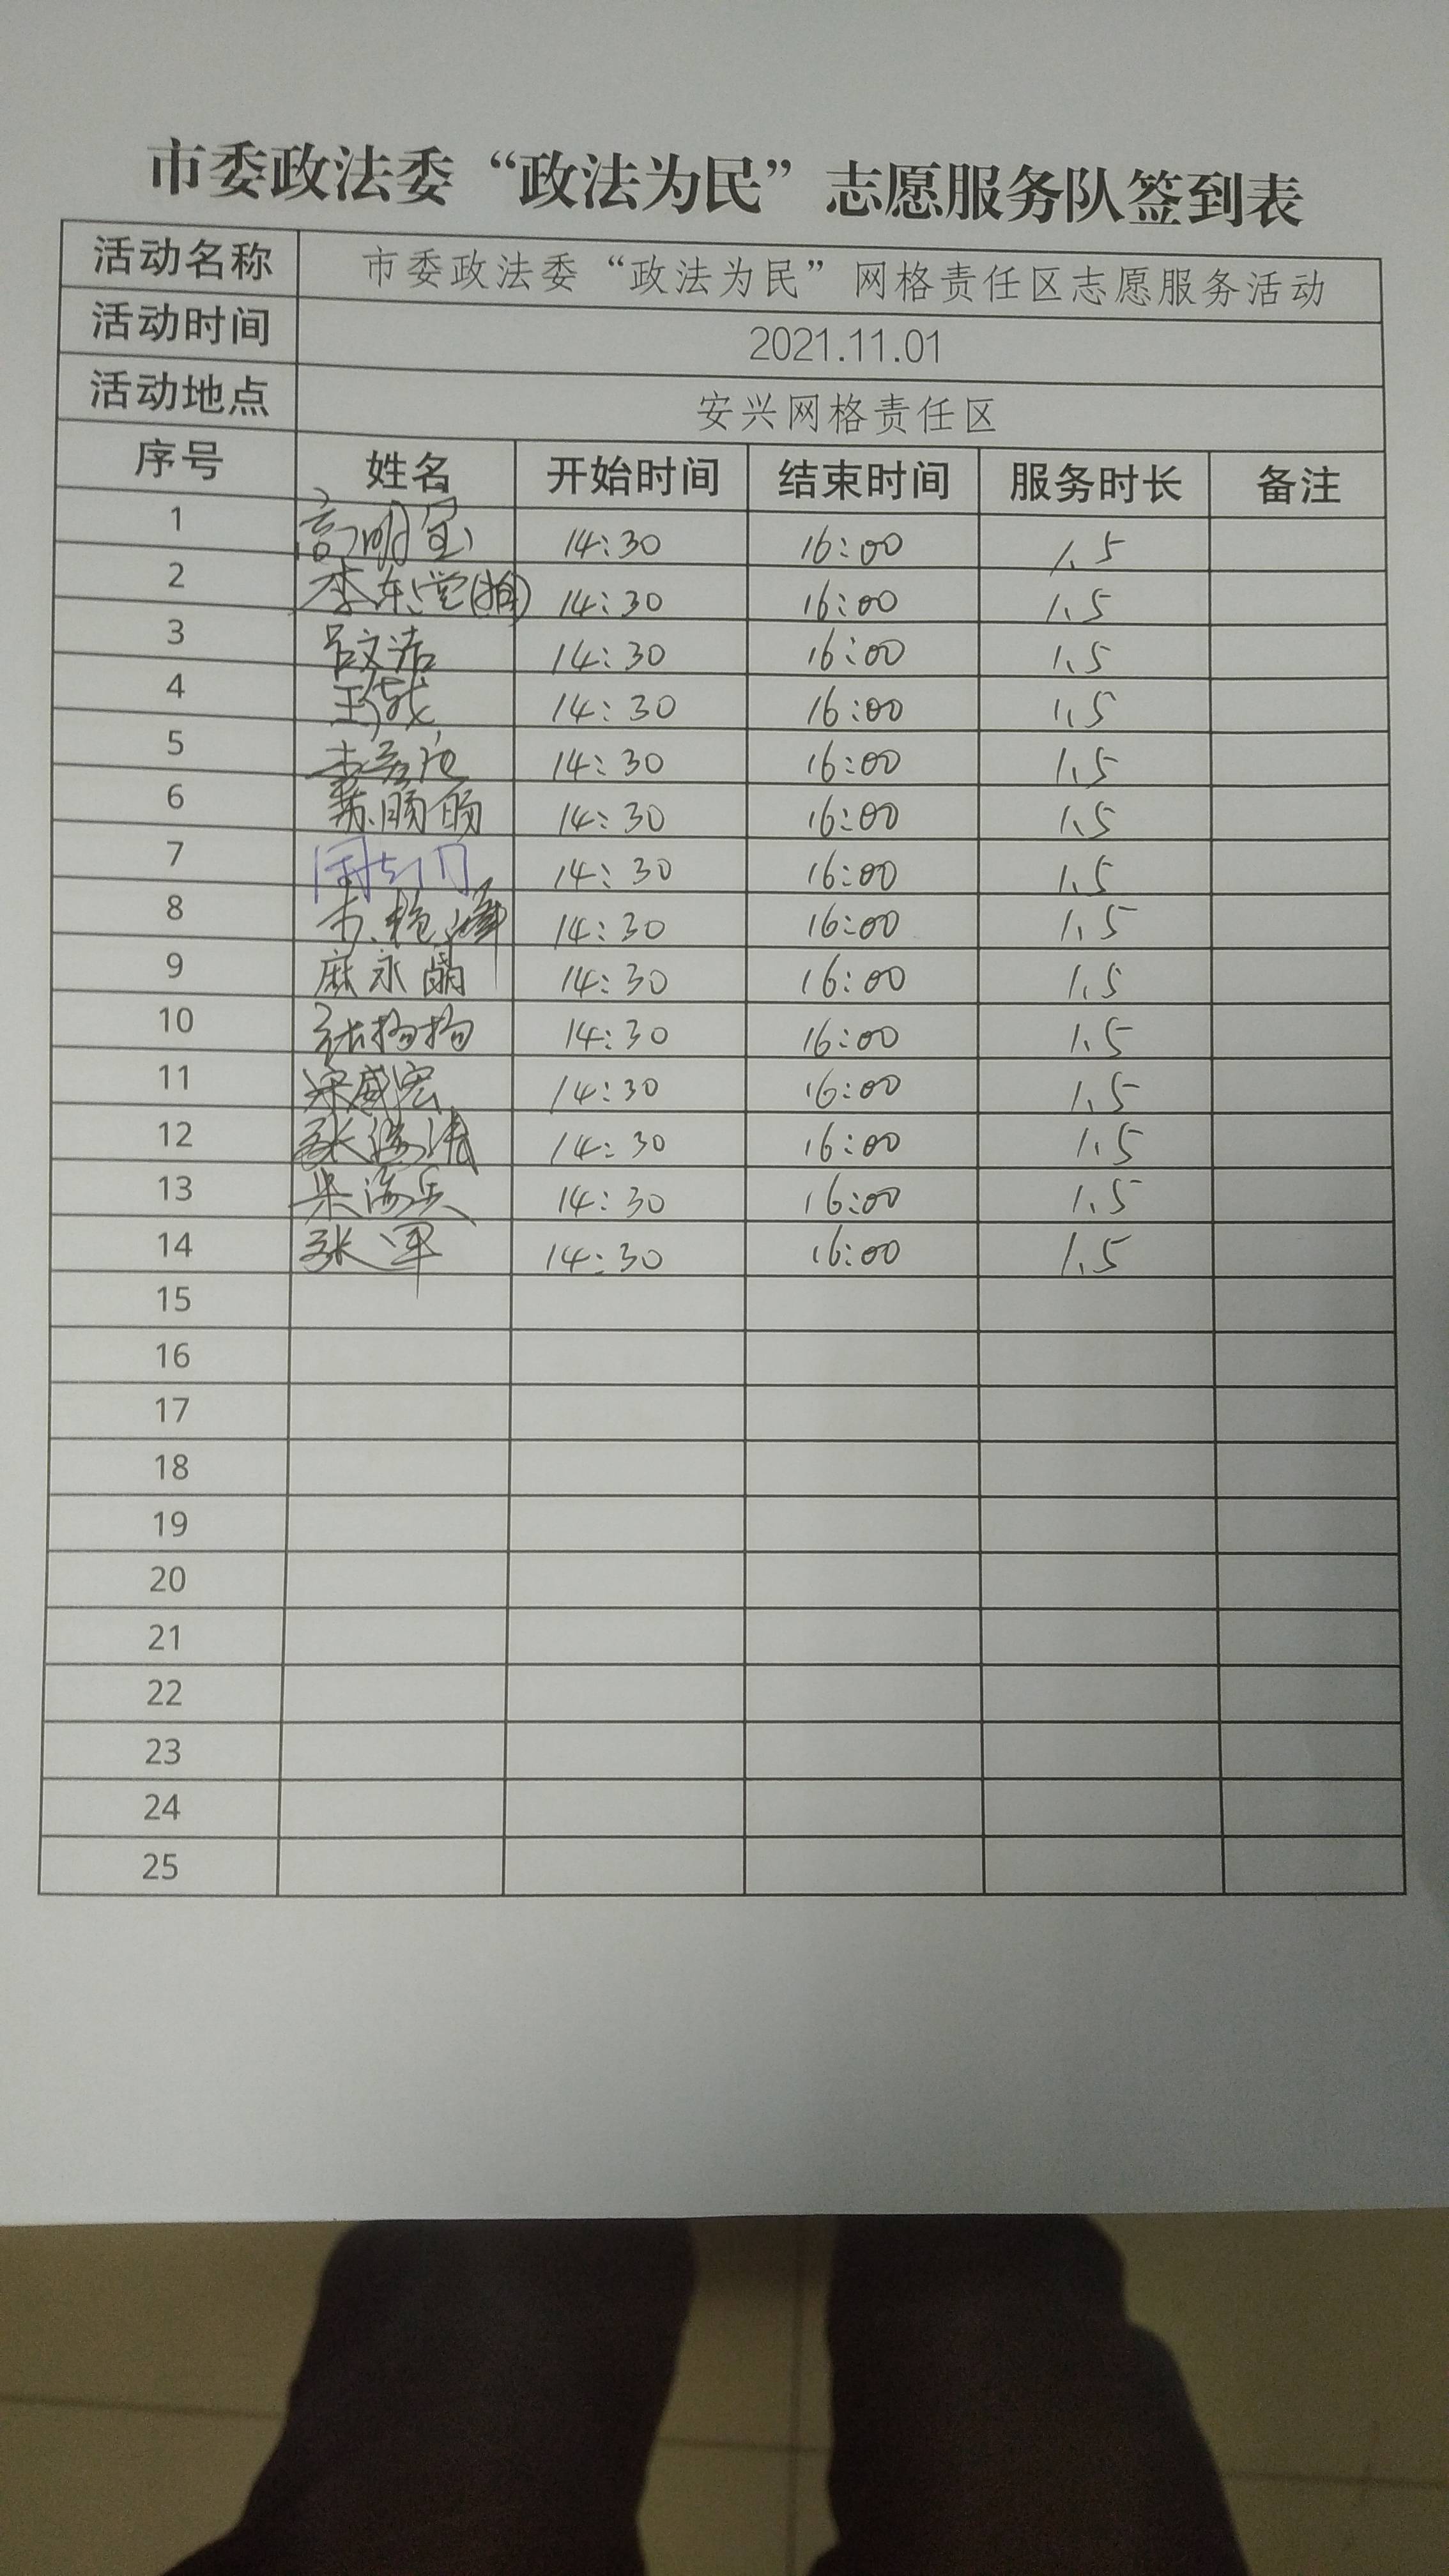 市委政法委“政法为民”志愿服务队签到表
活动名称 市委政法委“政法为民”网格责任区志愿服务活动
活动时间 2021.11.01
活动地点 安兴网格责任区
序号 姓名 开始时间 结束时间 服务时长 备注
1 高明宝 14:30 16:00 1.5
2 李东堂 14:30 16:00 1.5
3 吕文浩 14:30 16:00 1.5
4 14:30 16:00 1.5
5 14:30 16:00 1.5
6 14:30 16:00 1.5
7 14:30 16:00 1.5
8 14:30 16:00 1.5
9 麻永 14:30 16:00 1.5
10 张杨杨 14:30 16:00 1.5
11 宋威宏 14:30 16:00 1.5
12 张海涛 14:30 16:00 1.5
13 朱海兵 14:30 16:00 1.5
14 张军 14:30 16:00 1.5
15
16
17
18
19
20
21
22
23
24
25